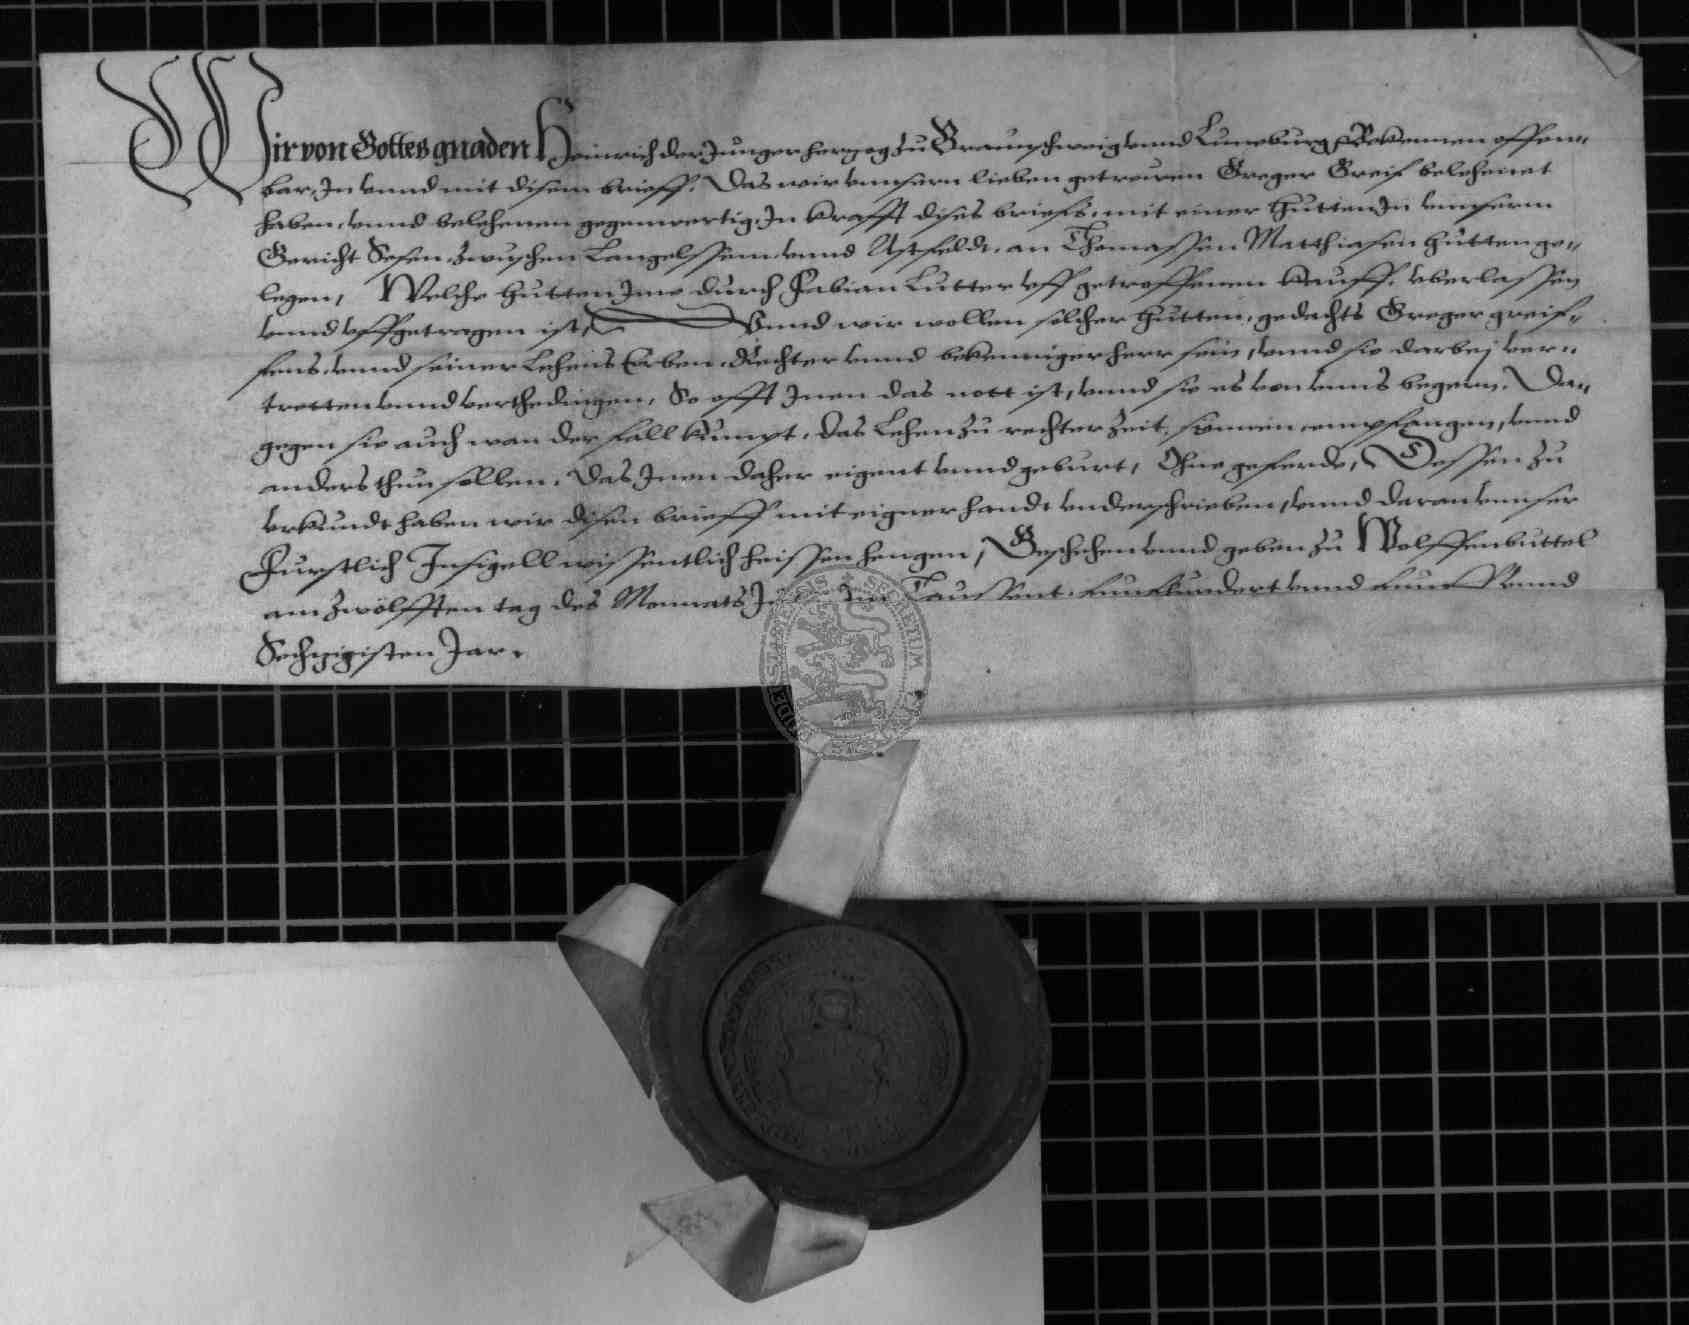 Wir von Gottes gnaden Heinrich der Junger hertzog zu Braunschweig vnnd Luneburg Bekennen offen-
bar, In vnnd mit disem brieff, Das wir vnnsern lieben getrewen Greger Greif belehenet
haben, vnnd belehenen gegenwertig, In krafft dises briefs, mit einer Hutten In vnnserm
Gericht Sesen, zwuschen Langelssem vnnd Astfeldt, an Thomassen Matthiasen Hütten ge-
legen, Welche Hutten Ime durch Fabian Lutter vff getroffenen Kauff, vberlassen
vnnd vffgetragen ist, Vnnd wir wollen solcher Hutten, gedachts Greger greif-
fens, vnnd seiner Lehens Erben, Rechter vnnd bekenniger herr sein, vnnd sie darbej ver-
tretten vnnd verthedingen, So offt Inen das nott ist, vnnd sie es von vnns begern, Da-
gegen sie auch wan der fall kumpt, das Lehen zu rechter Zeit, sonnen, empfangen, vnnd
anders thun sollen, Das Inen daher eigent vnnd geburt, Ohne geferde, Dessen zu
vrkundt haben wir disen brieff mit eigner handt vnderschrieben, vnnd daran vnnser
Furstlich Insigell wissentlich heissen hengen, Geschehen vnnd geben zu Wolffenbuttel
am zwölfften tag des Monnats Im Taussent funfhundert vnnd funf Vnnd
Sechzigisten Jar.
SIGILLUM